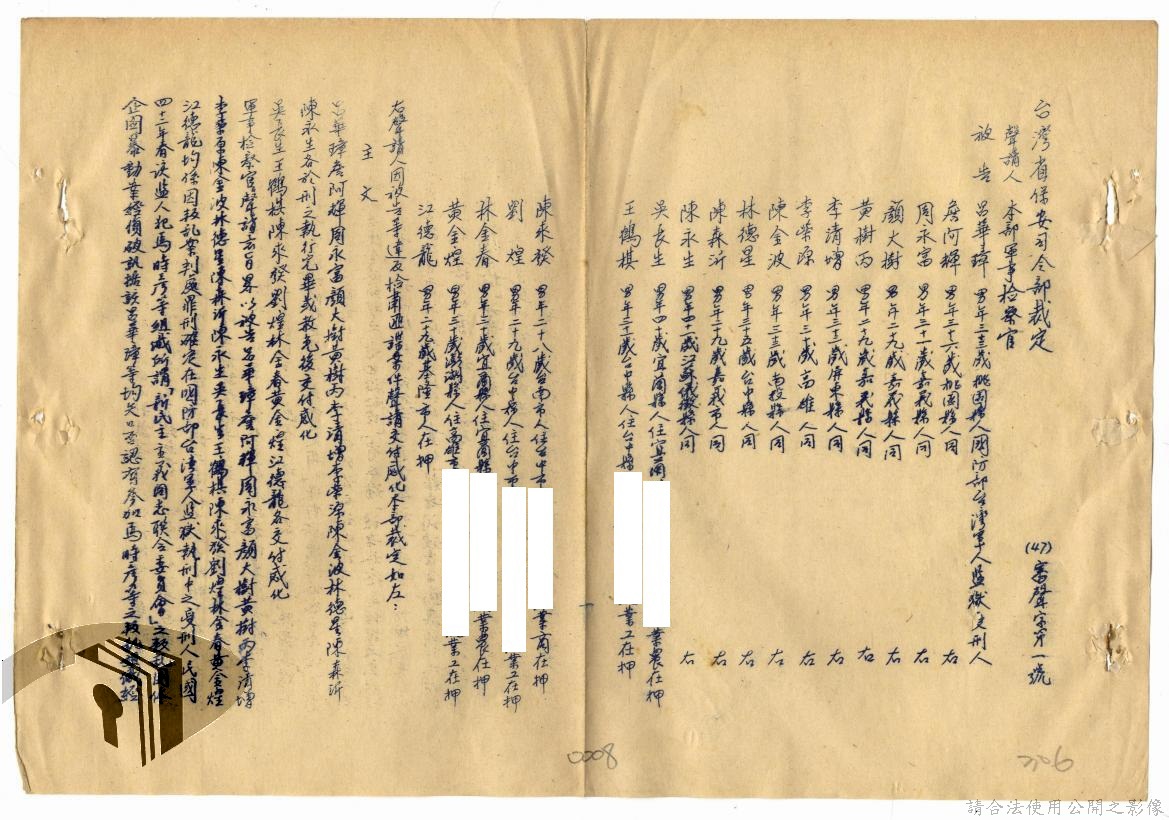 台灣省保安司令部裁定
(47)審聲字第一號
聲請人 本部軍事檢察官
被告 呂華璋 男年三十三歲桃園縣人國防部台灣軍人監獄受刑人
詹阿輝 男年三十六歲桃園縣人同 右
周永富 男年三十一歲嘉義縣人同 右
顏大樹 男年二九歲嘉義縣人同 右
黃樹丙 男年二九歲嘉義縣人同 右
李清增 男年三十三歲屏東縣人同 右
李榮源 男年三十歲高雄人同 右
陳金波 男年三十三歲南投縣人同 右
林德星 男年二十五歲台中縣人同 右
陳森沂 男年二十九歲嘉義市人同 右
陳永生 男年四十歲江蘇儀徵縣人同 右
吳長生 男年四十歲宜蘭縣人住宜蘭 業農在押
王鶴棋 男年三十歲台中縣人住台中縣 業工在押
陳來發 男年二十八歲台南市人住台中市 業商在押
劉煌 男年二十九歲台中縣人住台中市 業工在押
林金春 男年三十歲宜蘭縣人住宜蘭縣 業農在押
黃金煌 男年三十歲澎湖縣人住高雄市 業工在押
江德龍 男年二十九歲基隆市人在押
右聲請人因被告等違反檢肅匪諜案件聲請交付感化本部裁定如左:
主文
呂華璋詹阿輝周永富顏大樹黃樹丙李清增李榮源陳金波林德星陳森沂
陳永生各於刑之執行完畢或赦免後交付感化
吳長生王鶴棋陳來發劉煌林金春黃金煌江德龍各交付感化
軍事檢察官聲請意旨略以被告呂華璋詹阿輝周永富顏大樹黃樹丙李清增
李榮源陳金波林德星陳森沂陳永生吳長生王鶴棋陳來發劉煌林金春黃金煌
江德龍均係因叛亂案判處罪刑確定在國防部台灣軍人監獄執行中之受刑人民國
四十二年春該監人犯馬時彥等組織所謂「新民主主義同志聯合委員會」之叛亂團體
企圖暴動業經偵破訊據該呂華璋等均矢口否認有參加馬時彥等之叛亂組織經
0008
請合法使用公開之影像